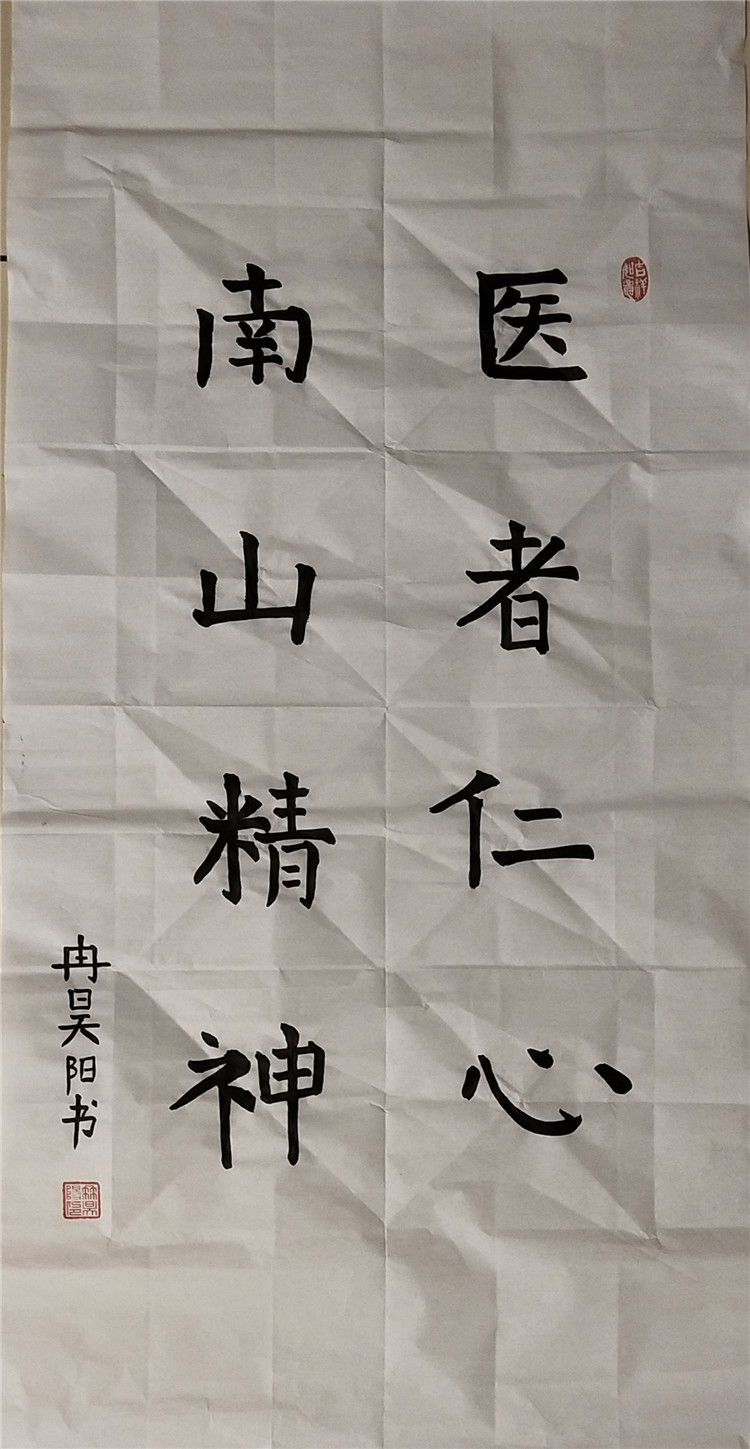 医者仁心
南山精神
冉昊阳书